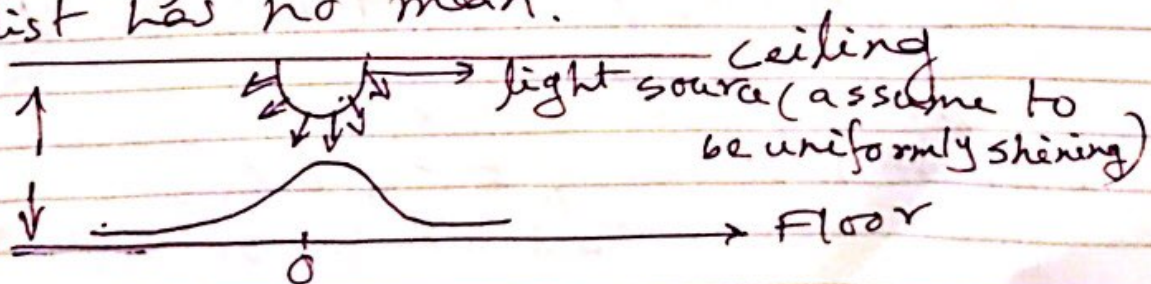 ist has no mean.
Ceiling
light source (assume to
be uniformly shining)
Floor
0